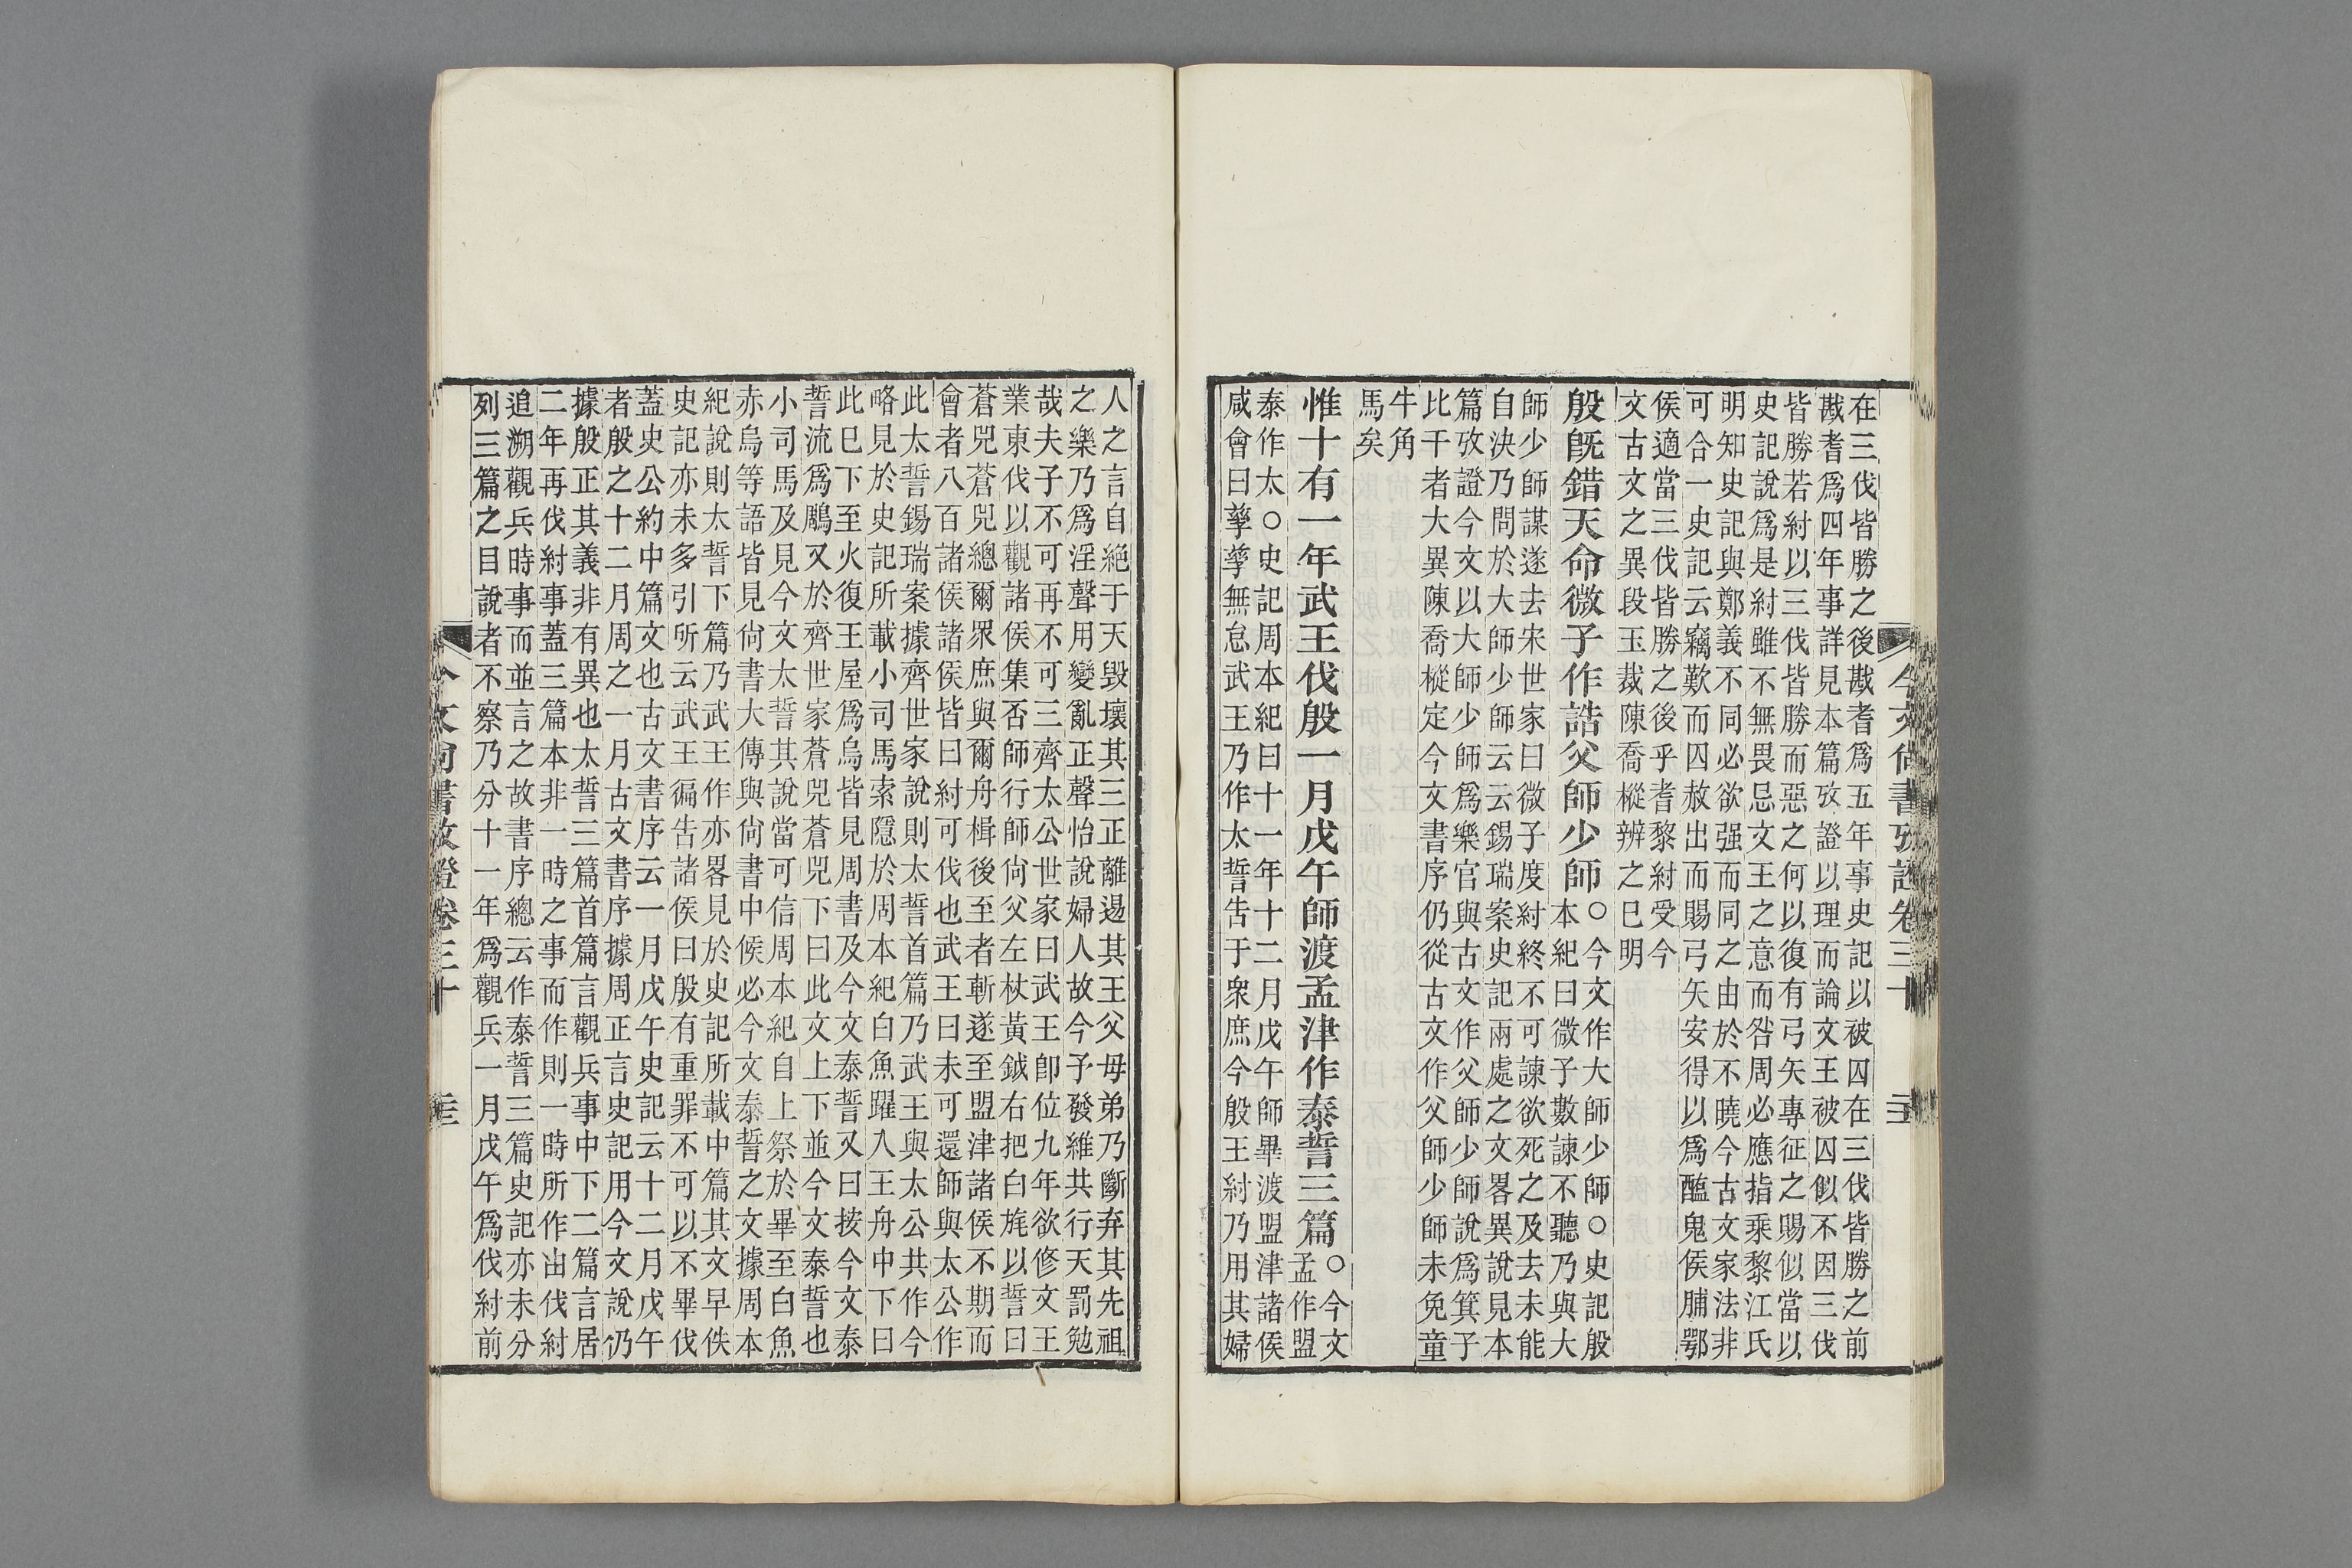 在三伐皆勝之後戡耆爲五年事史記以被囚在三伐皆勝之前
戡耆爲四年事詳見本篇攷證以理而論文王被囚似不因三伐
皆勝若紂以三伐皆勝而惡之何以復有弓矢專征之賜似當以
史記說爲是紂雖不無畏忌文王之意而咎周必應指乘黎江氏
明知史記與鄭義不同必欲强而同之由於不曉今古文家法非
可合一史記云竊歎而囚赦出而賜弓矢安得以爲醢鬼侯脯鄂
侯適當三伐皆勝之後乎耆黎紂受今
文古文之異段玉裁陳喬樅辨之巳明
殷旣錯天命微子作誥父師少師○今文作大師少師○史記殷
本紀曰微子數諫不聽乃與大
師少師謀遂去宋世家曰微子度紂終不可諫欲死之及去未能
自決乃問於大師少師云云錫瑞案史記兩處之文畧異說見本
篇攷證今文以大師少師爲樂官與古文作父師少師說爲箕子
比干者大異陳喬樅定今文書序仍從古文作父師少師未免童
牛角
馬矣
惟十有一年武王伐殷一月戊午師渡孟津作泰誓三篇○今文
孟作盟
泰作太○史記周本紀曰十一年十二月戊午師畢渡盟津諸侯
咸會曰孳孳無怠武王乃作太誓告于衆庶今殷王紂乃用其婦
今文尚書攷證卷三十
人之言自絕于天毀壞其三正離逷其王父母弟乃斷弃其先祖
之樂乃爲淫聲用變亂正聲怡說婦人故今予發維共行天罰勉
哉夫子不可再不可三齊太公世家曰武王卽位九年欲修文王
業東伐以觀諸侯集否師行師尙父左杖黃鉞右把白旄以誓曰
蒼兕蒼兕總爾眾庶與爾舟楫後至者斬遂至盟津諸侯不期而
會者八百諸侯諸侯皆曰紂可伐也武王曰未可還師與太公作
此太誓錫瑞案據齊世家說則太誓首篇乃武王與太公共作今
略見於史記所載小司馬索隱於周本紀白魚躍入王舟中下曰
此巳下至火復王屋爲烏皆見周書及今文泰誓又曰按今文泰
誓流爲鵰又於齊世家蒼兕蒼兕下曰此文上下並今文泰誓也
小司馬及見今文太誓其說當可信周本紀自上祭於畢至白魚
赤烏等語皆見尙書大傳與尙書中候必今文泰誓之文據周本
紀說則太誓下篇乃武王作亦畧見於史記所載中篇其文早佚
史記亦未多引所云武王徧告諸侯曰殷有重罪不可以不畢伐
蓋史公約中篇文也古文書序云一月戊午史記云十二月戊午
者殷之十二月周之一月古文書序據周正言史記用今文說仍
據殷正其義非有異也太誓三篇首篇言觀兵事中下二篇言居
二年再伐紂事蓋三篇本非一時之事而作則一時所作由伐紂
追溯觀兵時事而並言之故書序總云作泰誓三篇史記亦未分
列三篇之目說者不察乃分十一年爲觀兵一月戊午爲伐紂前